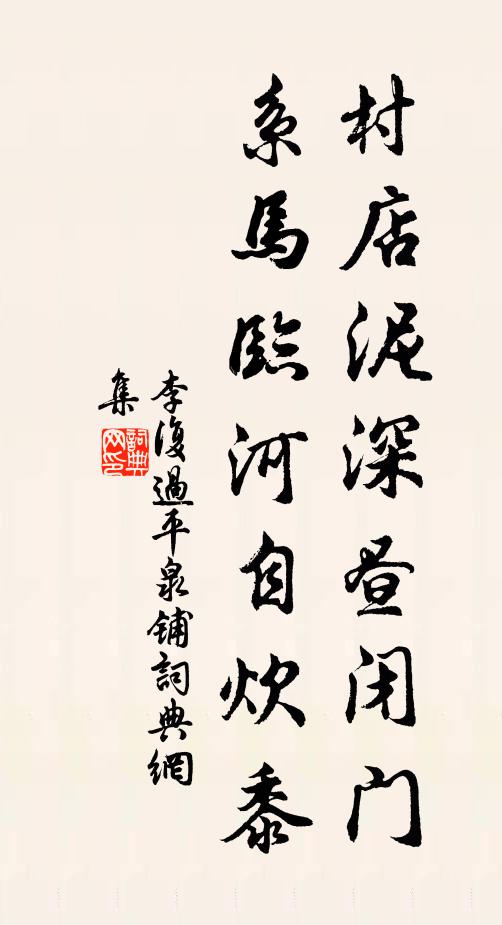 村店泥深昼闭门
系馬臨河自炊黍
李復過平泉铺詞典網
集
詞典
网印